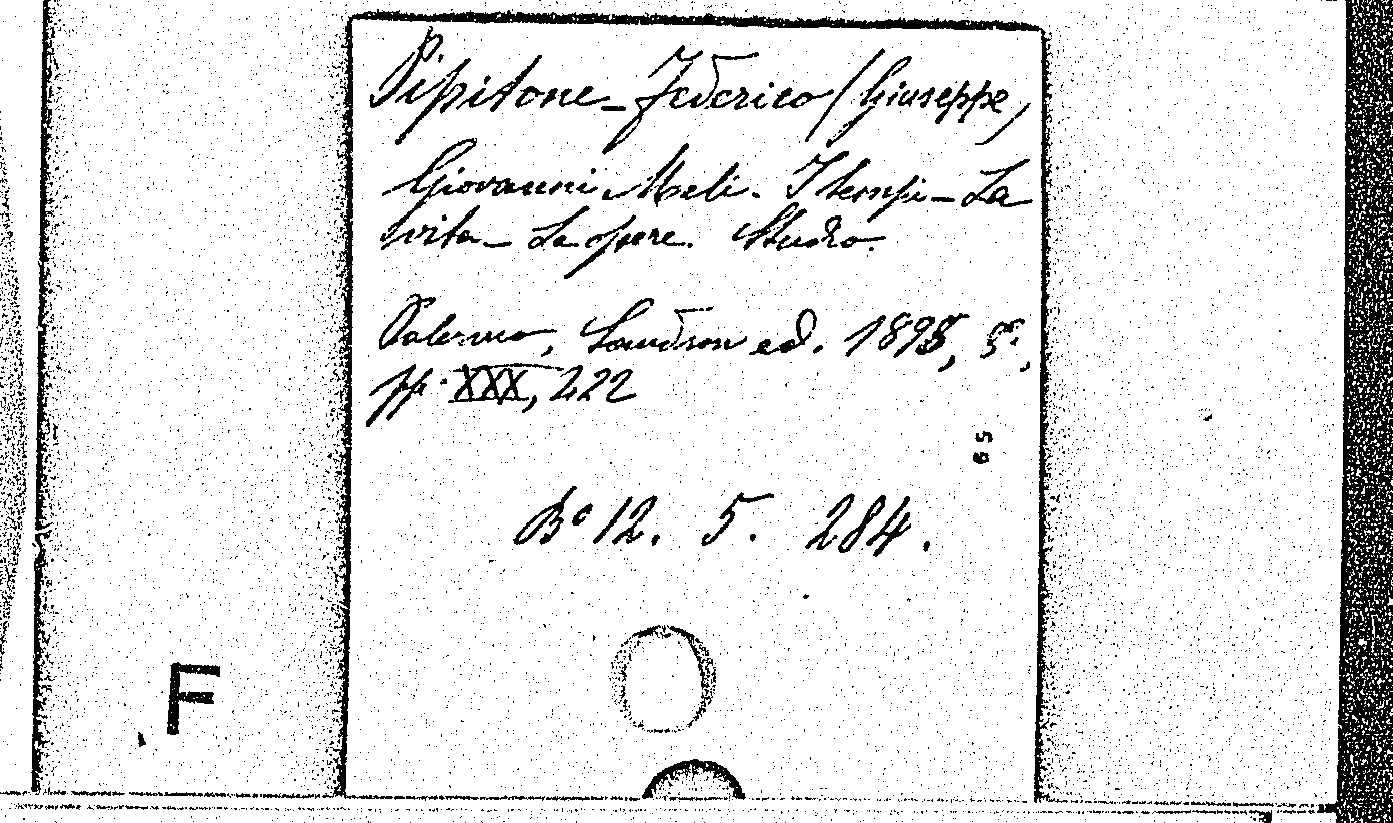 Pipitone-Federico (Giuseppe)
Giovanni Meli. I tempi - La
vita - Le opere. Studio.
Palermo, Sandron ed. 1898, 8°,
pp. XXX, 222
65
B° 12. 5. 284.
F